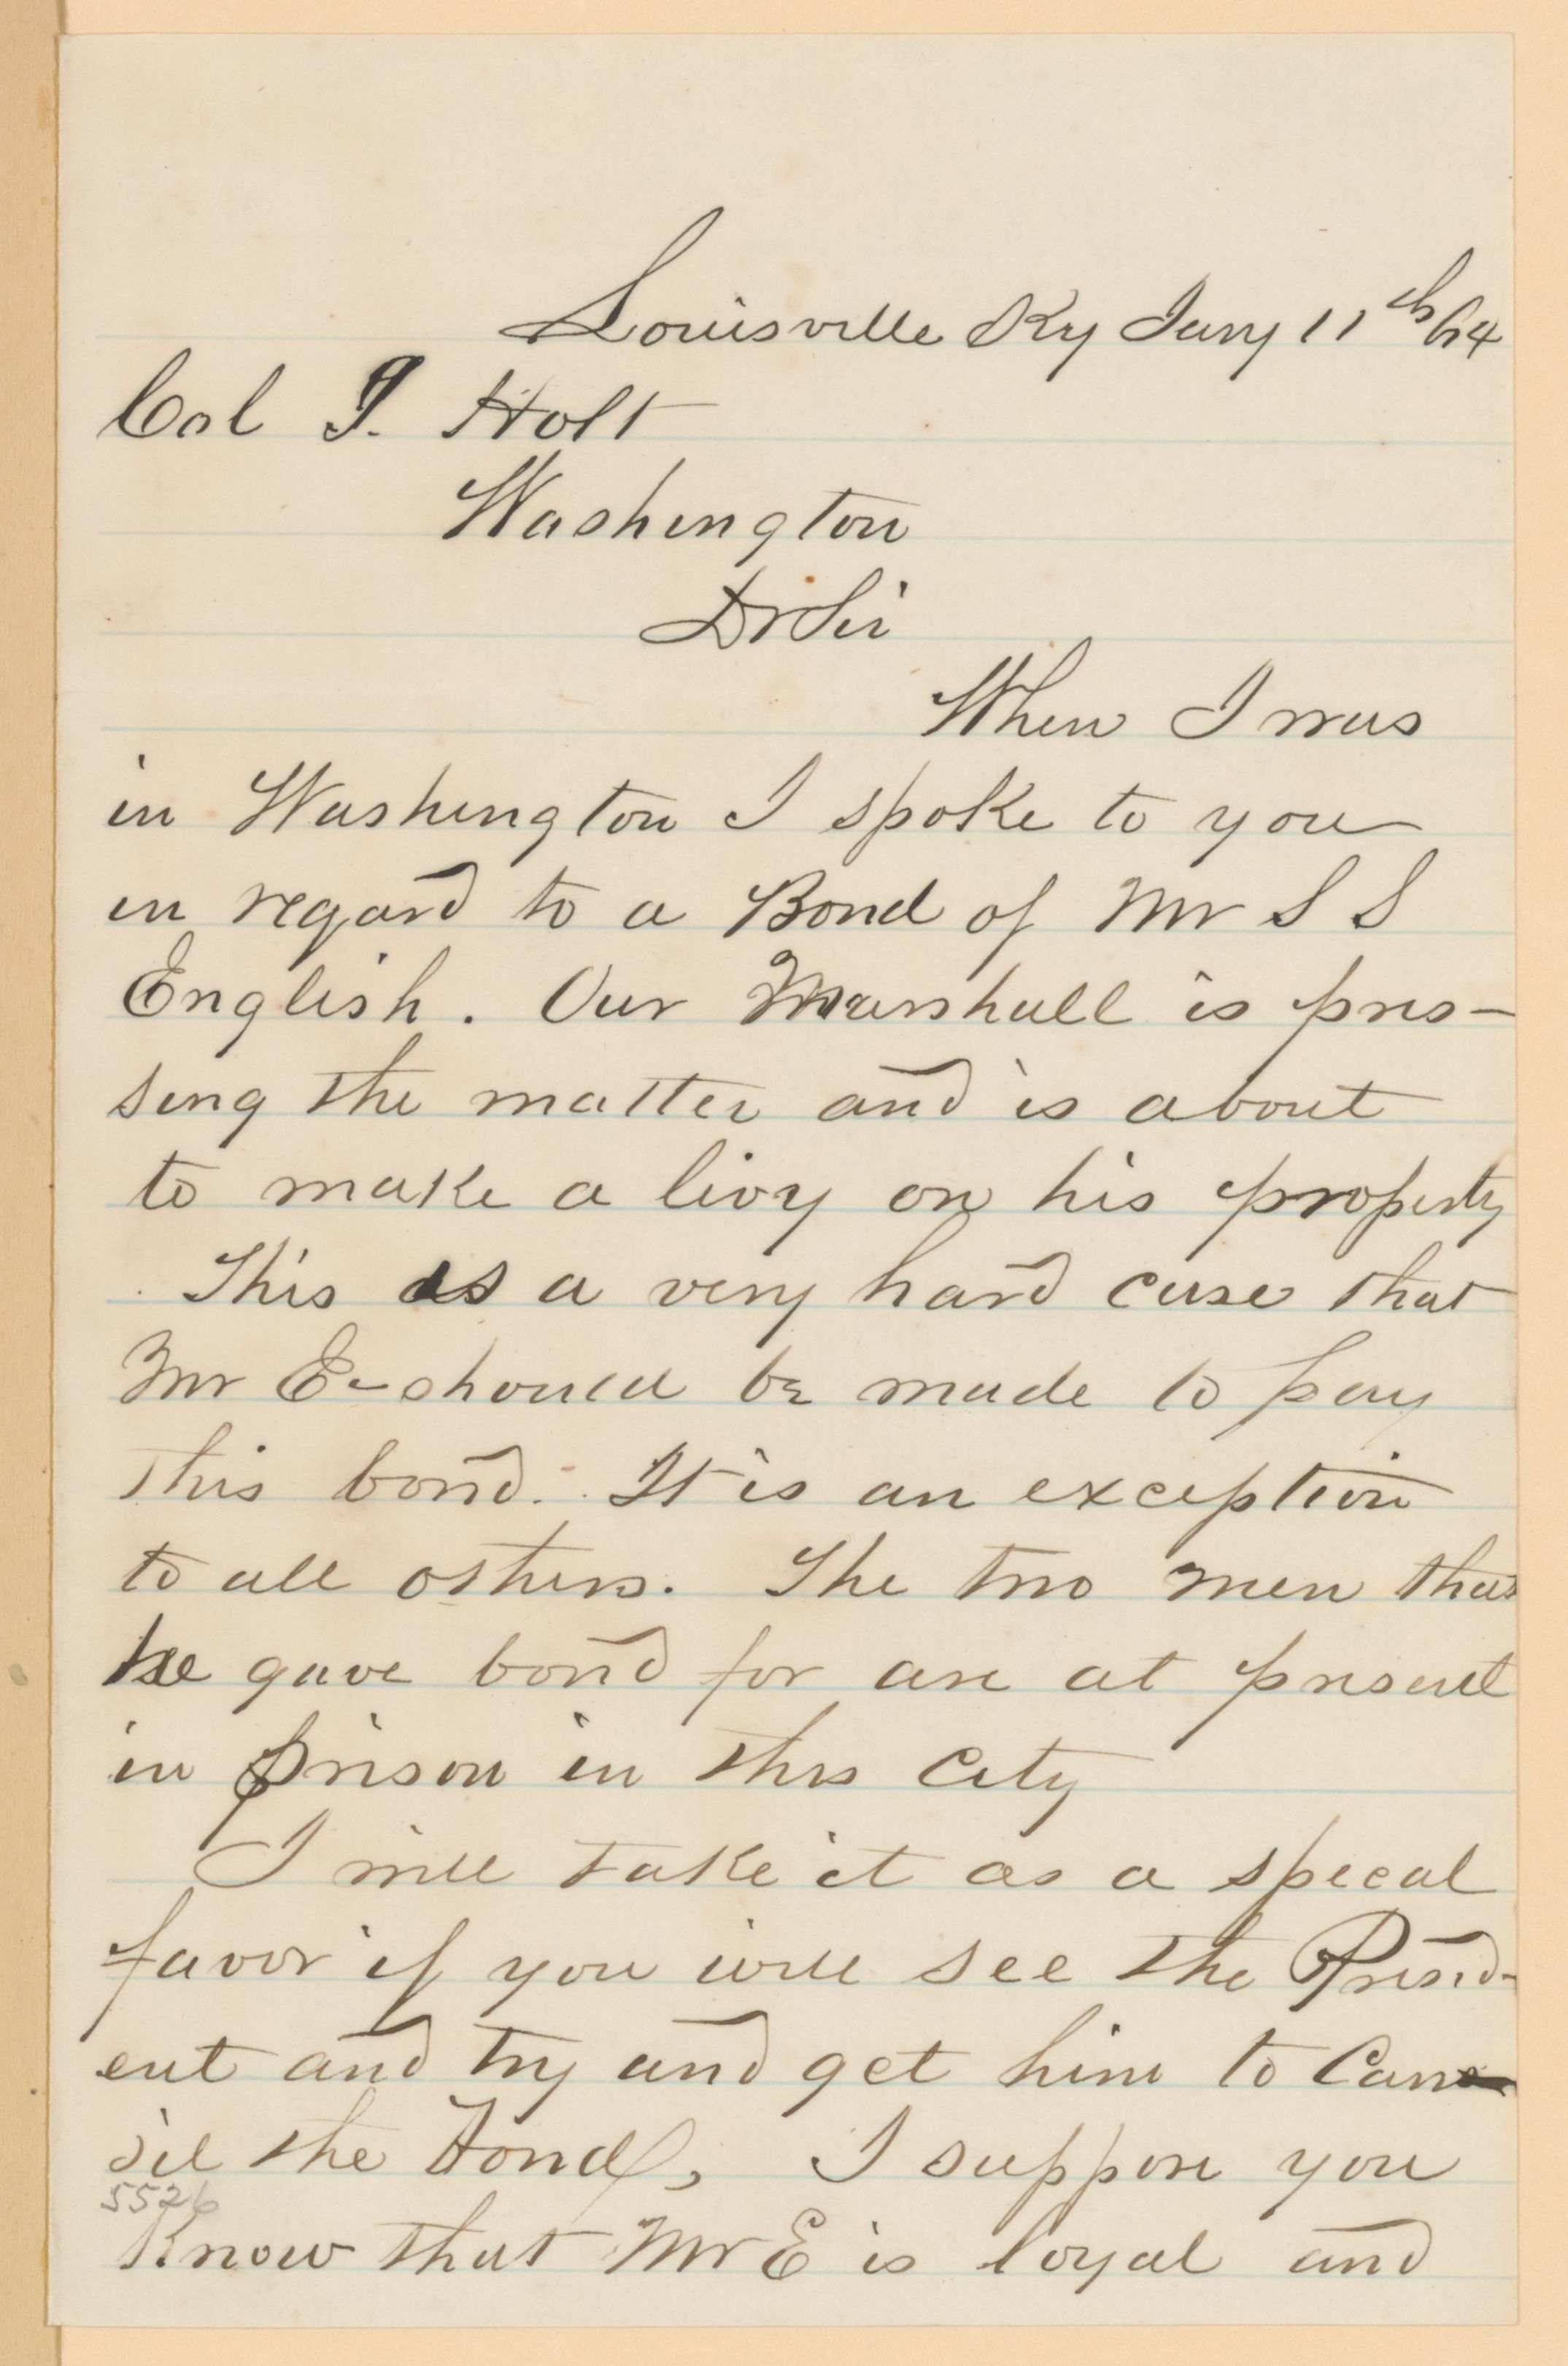 Louisville Ky Jany 11th/64
Col J. Holt
Washington
Dr Sir
When I was
in Washington I spoke to you
in regard to a Bond of Mr S S
English. Our Marshall is pres-
sing the matter and is about
to make a livy on his property
This is a very hard case that
Mr E- should be made to pay
this bond. It is an exception
to all others. The two men that
he gave bond for are at present
in prison in this City
I will take it as a specal
favor if you will see the Presid-
ent and try and get him to Can
sil the Bond, I suppose you
5526
Know that Mr E is loyal and